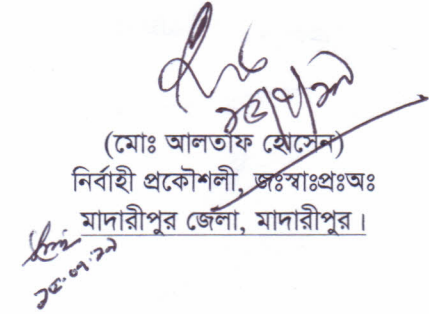 (মোঃ আলতাফ হোসেন)
নির্বাহী প্রকৌশলী, জঃস্বাঃপ্রঃঅঃ
মাদারীপুর জেলা, মাদারীপুর।